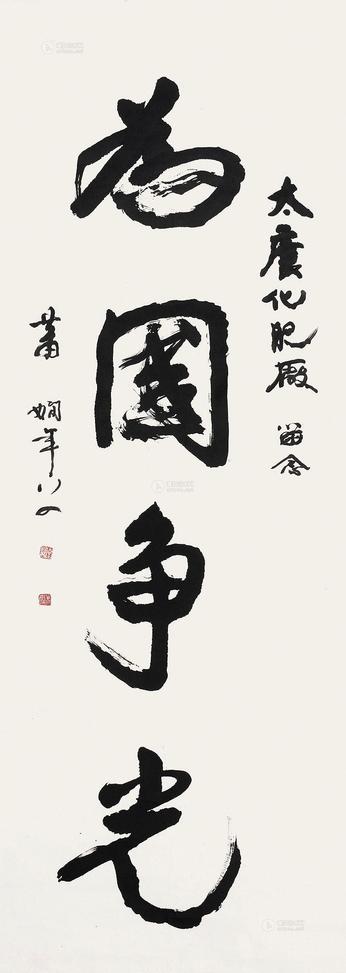 太化肥廠 留念
為國争光
蕭嫻年八